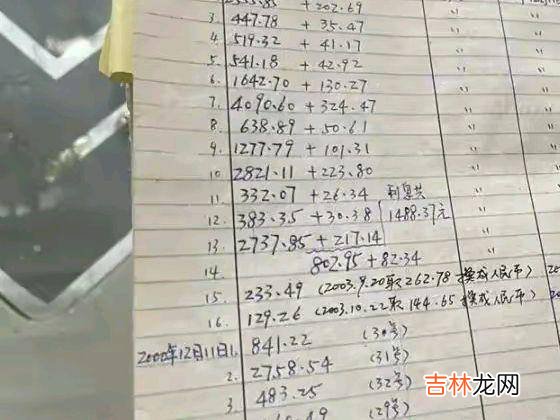 2555.85 + 202.69 "
3. 447.78 + 35.47 "
4. 519.32 + 41.17 "
5. 541.18 + 42.92 "
6. 1642.70 + 130.27 "
7. 4090.60 + 324.47 "
8. 638.89 + 50.61 "
9. 1277.79 + 101.31 "
10. 2821.11 + 223.80 "
11. 332.07 + 26.34 利息共 "
12. 383.35 + 30.38 1488.37元 "
13. 2737.85 + 217.14 "
14. 802.95 + 82.34 "
15. 233.49 (2003.9.20取262.78 换成人民币) 20
16. 129.26 (2003.10.22取144.65 换成人民币) 20
2000年12月11日1. 841.22 (30号)
2. 2758.54 (31号)
3. 483.25 (32号)
.49 (29号)
吉林龙网